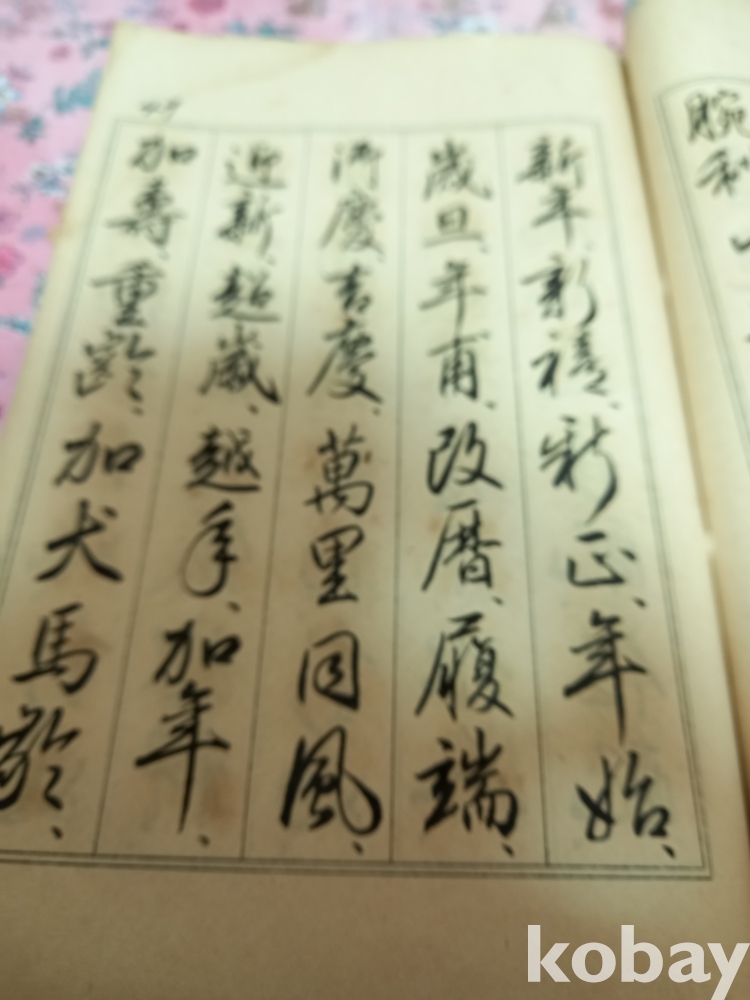 新年、新禧、新正、年始、
歳旦、年甫、改暦、履端、
御慶、吉慶、萬里同風、
迎新、超歳、越年、加年、
加壽、重齡、加犬馬齡、
腕
利
kobay